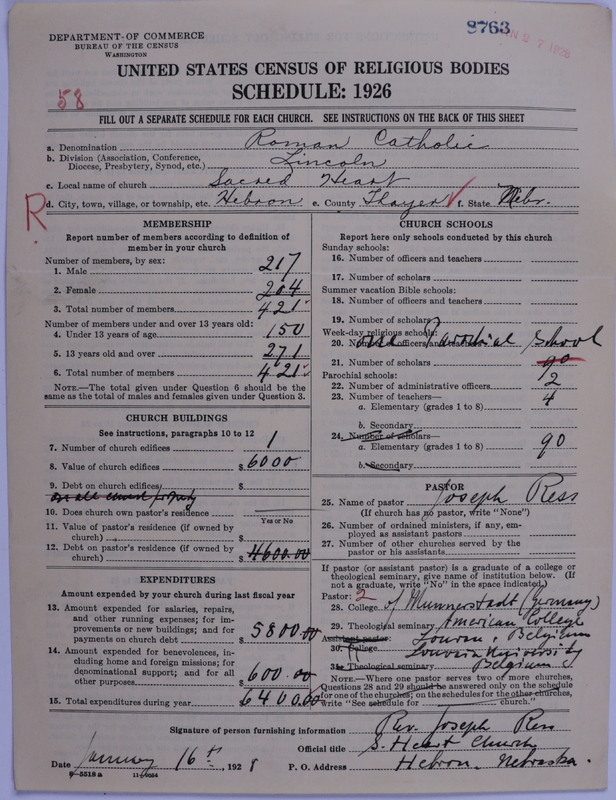 DEPARTMENT OF COMMERCE
BUREAU OF THE CENSUS
WASHINGTON
8763
JAN 27 1928
UNITED STATES CENSUS OF RELIGIOUS BODIES
SCHEDULE: 1926
58
FILL OUT A SEPARATE SCHEDULE FOR EACH CHURCH. SEE INSTRUCTIONS ON THE BACK OF THIS SHEET
a. Denomination Roman Catholic
b. Division (Association, Conference, Diocese, Presbytery, Synod, etc.) Lincoln
c. Local name of church Sacred Heart
R
d. City, town, village, or township, etc. Hebron e. County Thayer f. State Nebr.
MEMBERSHIP
Report number of members according to definition of
member in your church
Number of members, by sex:
1. Male 217
2. Female 204
3. Total number of members 421
Number of members under and over 13 years old:
4. Under 13 years of age 150
5. 13 years old and over 271
6. Total number of members 421
NOTE.—The total given under Question 6 should be the
same as the total of males and females given under Question 3.
CHURCH BUILDINGS
See instructions, paragraphs 10 to 12
7. Number of church edifices 1
8. Value of church edifices $6000
9. Debt on church edifices $
on all church property
10. Does church own pastor's residence
Yes or No
11. Value of pastor's residence (if owned by
church) $
12. Debt on pastor's residence (if owned by
church) $4600.00
EXPENDITURES
Amount expended by your church during last fiscal year
13. Amount expended for salaries, repairs,
and other running expenses; for im-
provements or new buildings; and for
payments on church debt $5800.00
14. Amount expended for benevolences, in-
cluding home and foreign missions; for
denominational support; and for all
other purposes $600.00
15. Total expenditures during year $6400.00
CHURCH SCHOOLS
Report here only schools conducted by this church
Sunday schools:
16. Number of officers and teachers
17. Number of scholars
Summer vacation Bible schools:
18. Number of officers and teachers
19. Number of scholars
Week-day religious schools:
20. Number of officers and teachers Parochial School
21. Number of scholars 90
Parochial schools:
22. Number of administrative officers 2
23. Number of teachers— 4
a. Elementary (grades 1 to 8)
b. Secondary
24. Number of scholars—
a. Elementary (grades 1 to 8) 90
b. Secondary
PASTOR
25. Name of pastor Joseph Ress
(If church has no pastor, write "None")
26. Number of ordained ministers, if any, em-
ployed as assistant pastors
27. Number of other churches served by the
pastor or his assistants
If pastor (or assistant pastor) is a graduate of a college or
theological seminary, give name of institution below. (If
not a graduate, write "No" in the space indicated.)
Pastor: 2
28. College of Munnerstadt (Germany)
29. Theological seminary American College
Assistant pastor: Louvain, Belgium
30. College Louvain University
31. Theological seminary Belgium
NOTE.—Where one pastor serves two or more churches,
Questions 28 and 29 should be answered only on the schedule
for one of the churches; on the schedules for the other churches,
write "See schedule for church."
Signature of person furnishing information Rev. Joseph Ress
Official title S. Heart Church
Date January 16th, 1928 P. O. Address Hebron, Nebraska.
8—5518 a